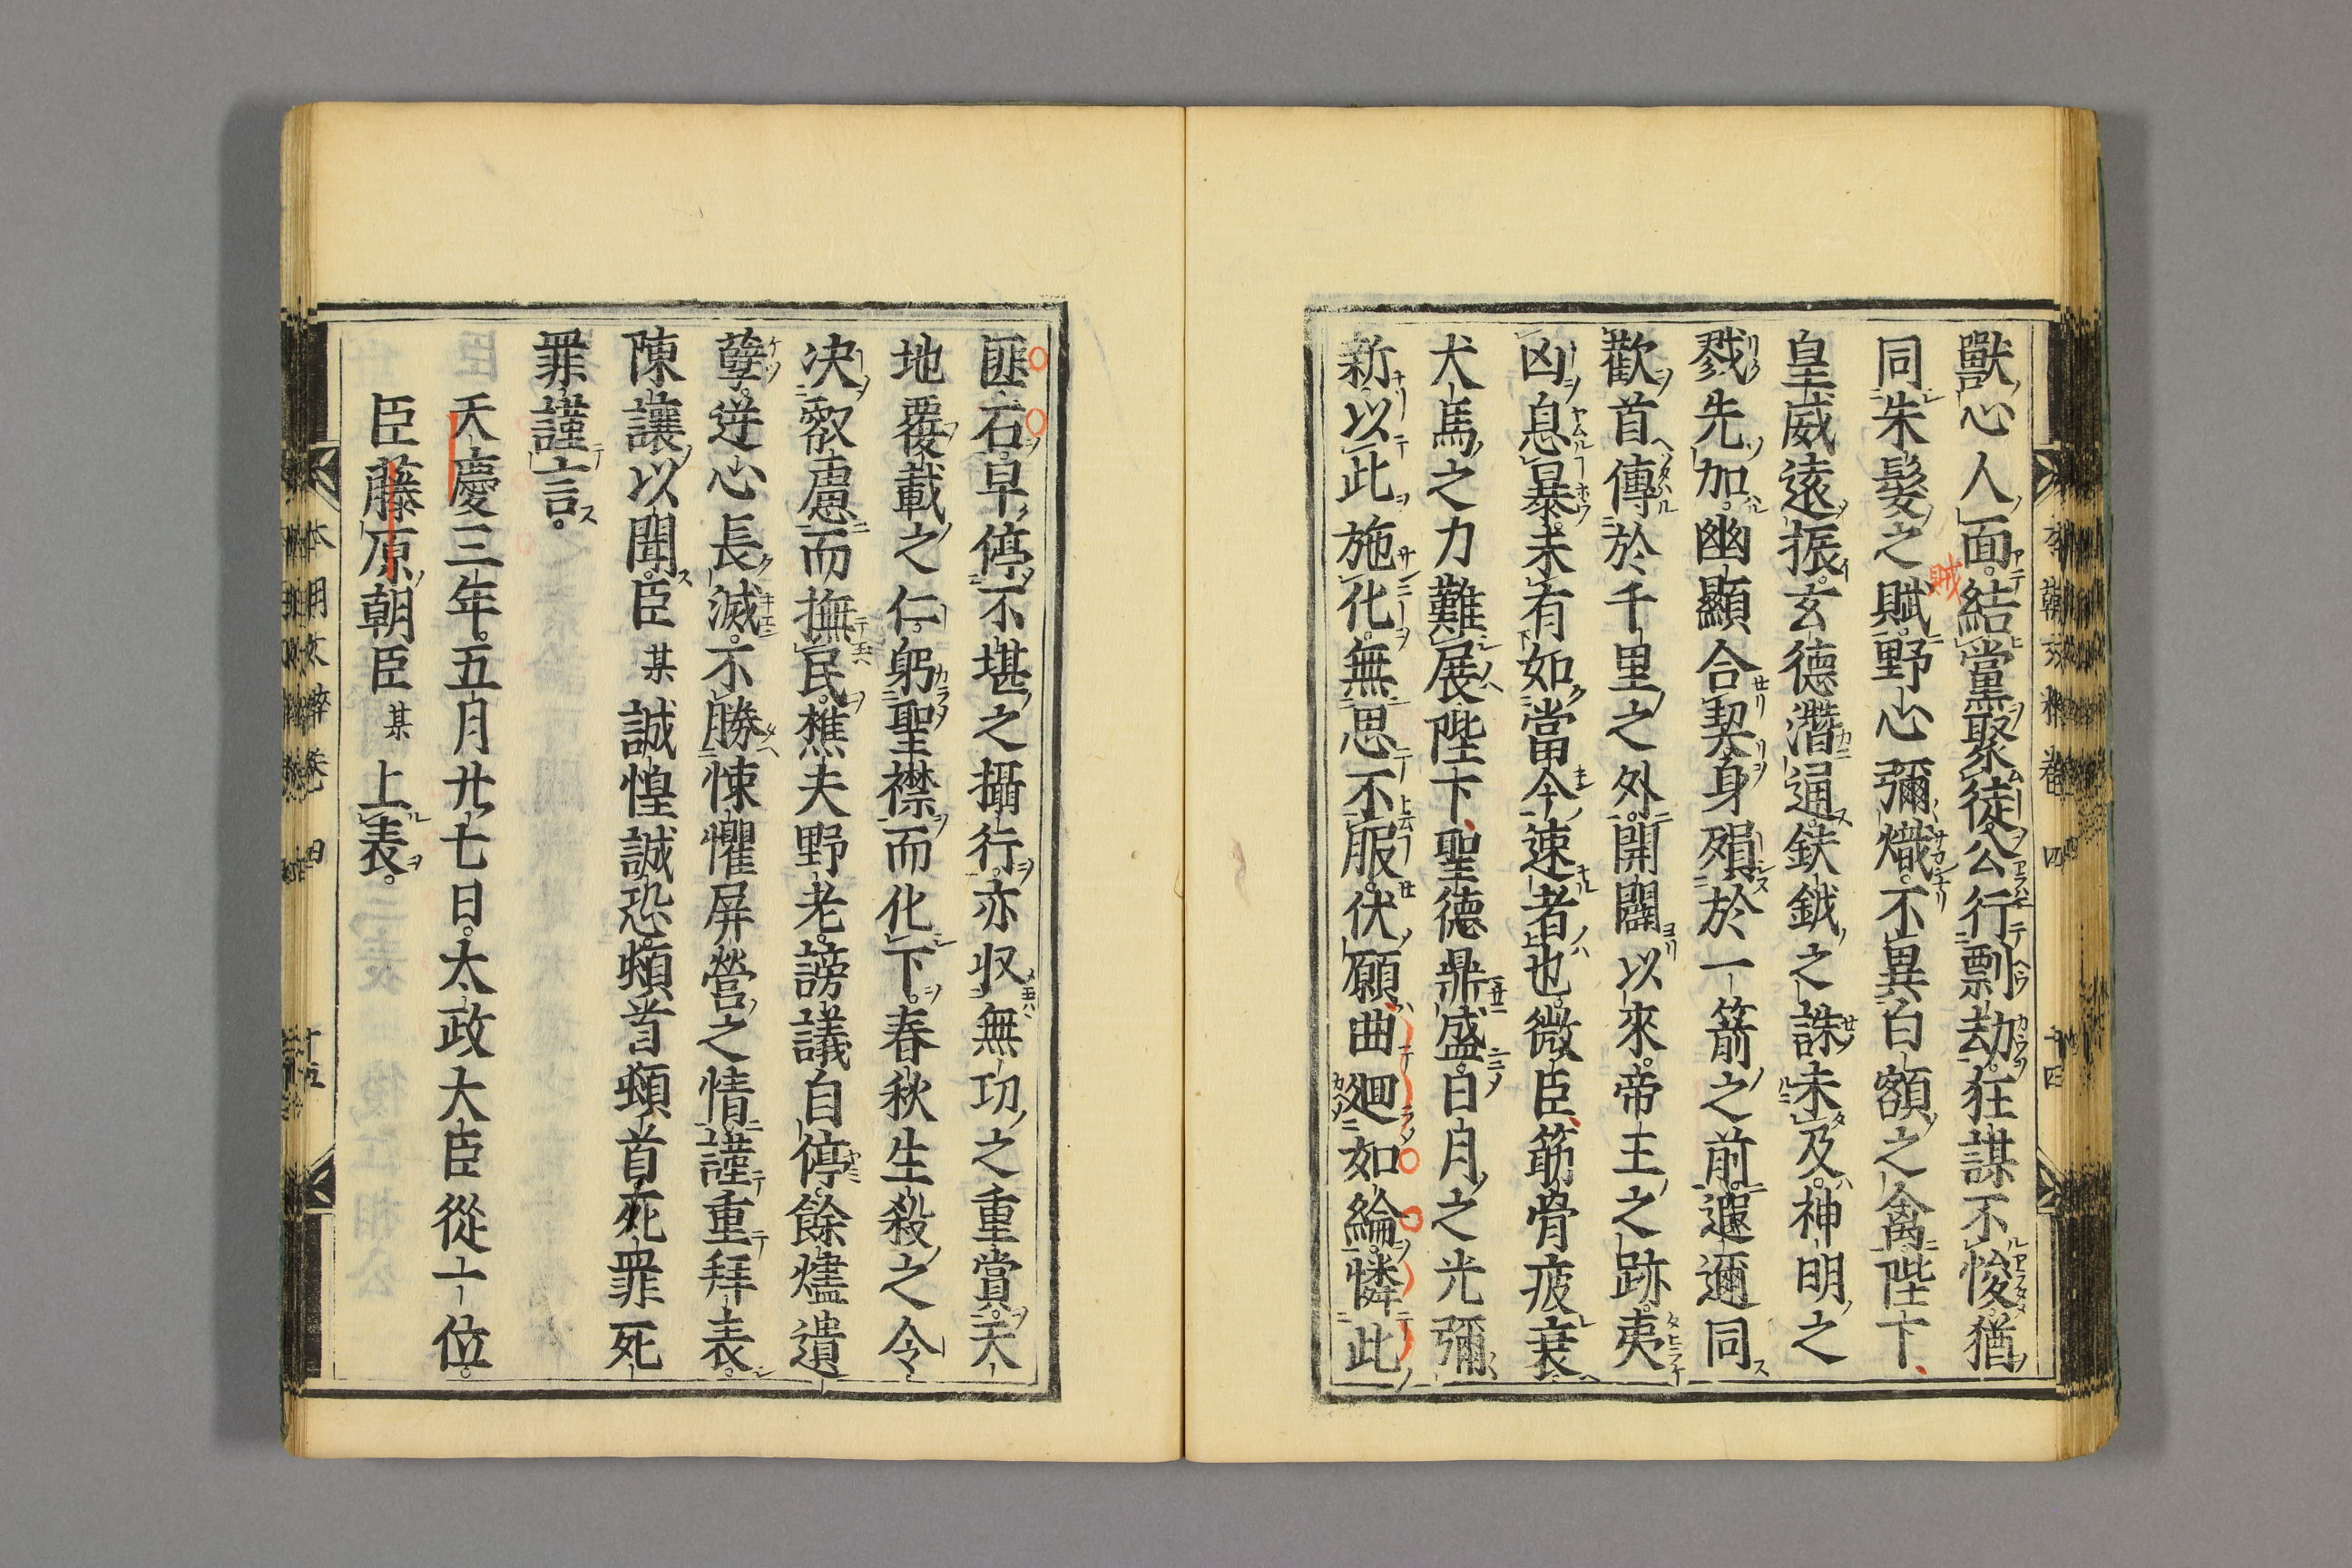 獸心人面結黨聚徒公行剽劫狂謀不悛猶
同朱髮之賦野心彌熾不異白額之禽陛下
賊
皇威遠振玄德潛通鈇鉞之誅未及神明之
戮先加幽顯合契身殞於一箭之前遐邇同
歡首傳於千里之外開闢以來帝王之跡夷
凶息暴未有如當今速者也微臣筋骨疲衰
犬馬之力難展陛下聖德鼎盛日月之光彌
新以此施化無思不服伏願曲廻如綸憐此
匪石早停不堪之攝行亦収無功之重賞天
地覆載之仁躬聖襟而化下春秋生殺之令
决叡慮而撫民樵夫野老謗議自停餘燼遺
孽逆心長滅不勝悚懼屏營之情謹重拜表
陳讓以聞臣某誠惶誠恐頓首頓首死罪死
罪謹言
天慶三年五月廿七日太政大臣從一位
臣藤原朝臣某上表
本朝文粹卷四 十四